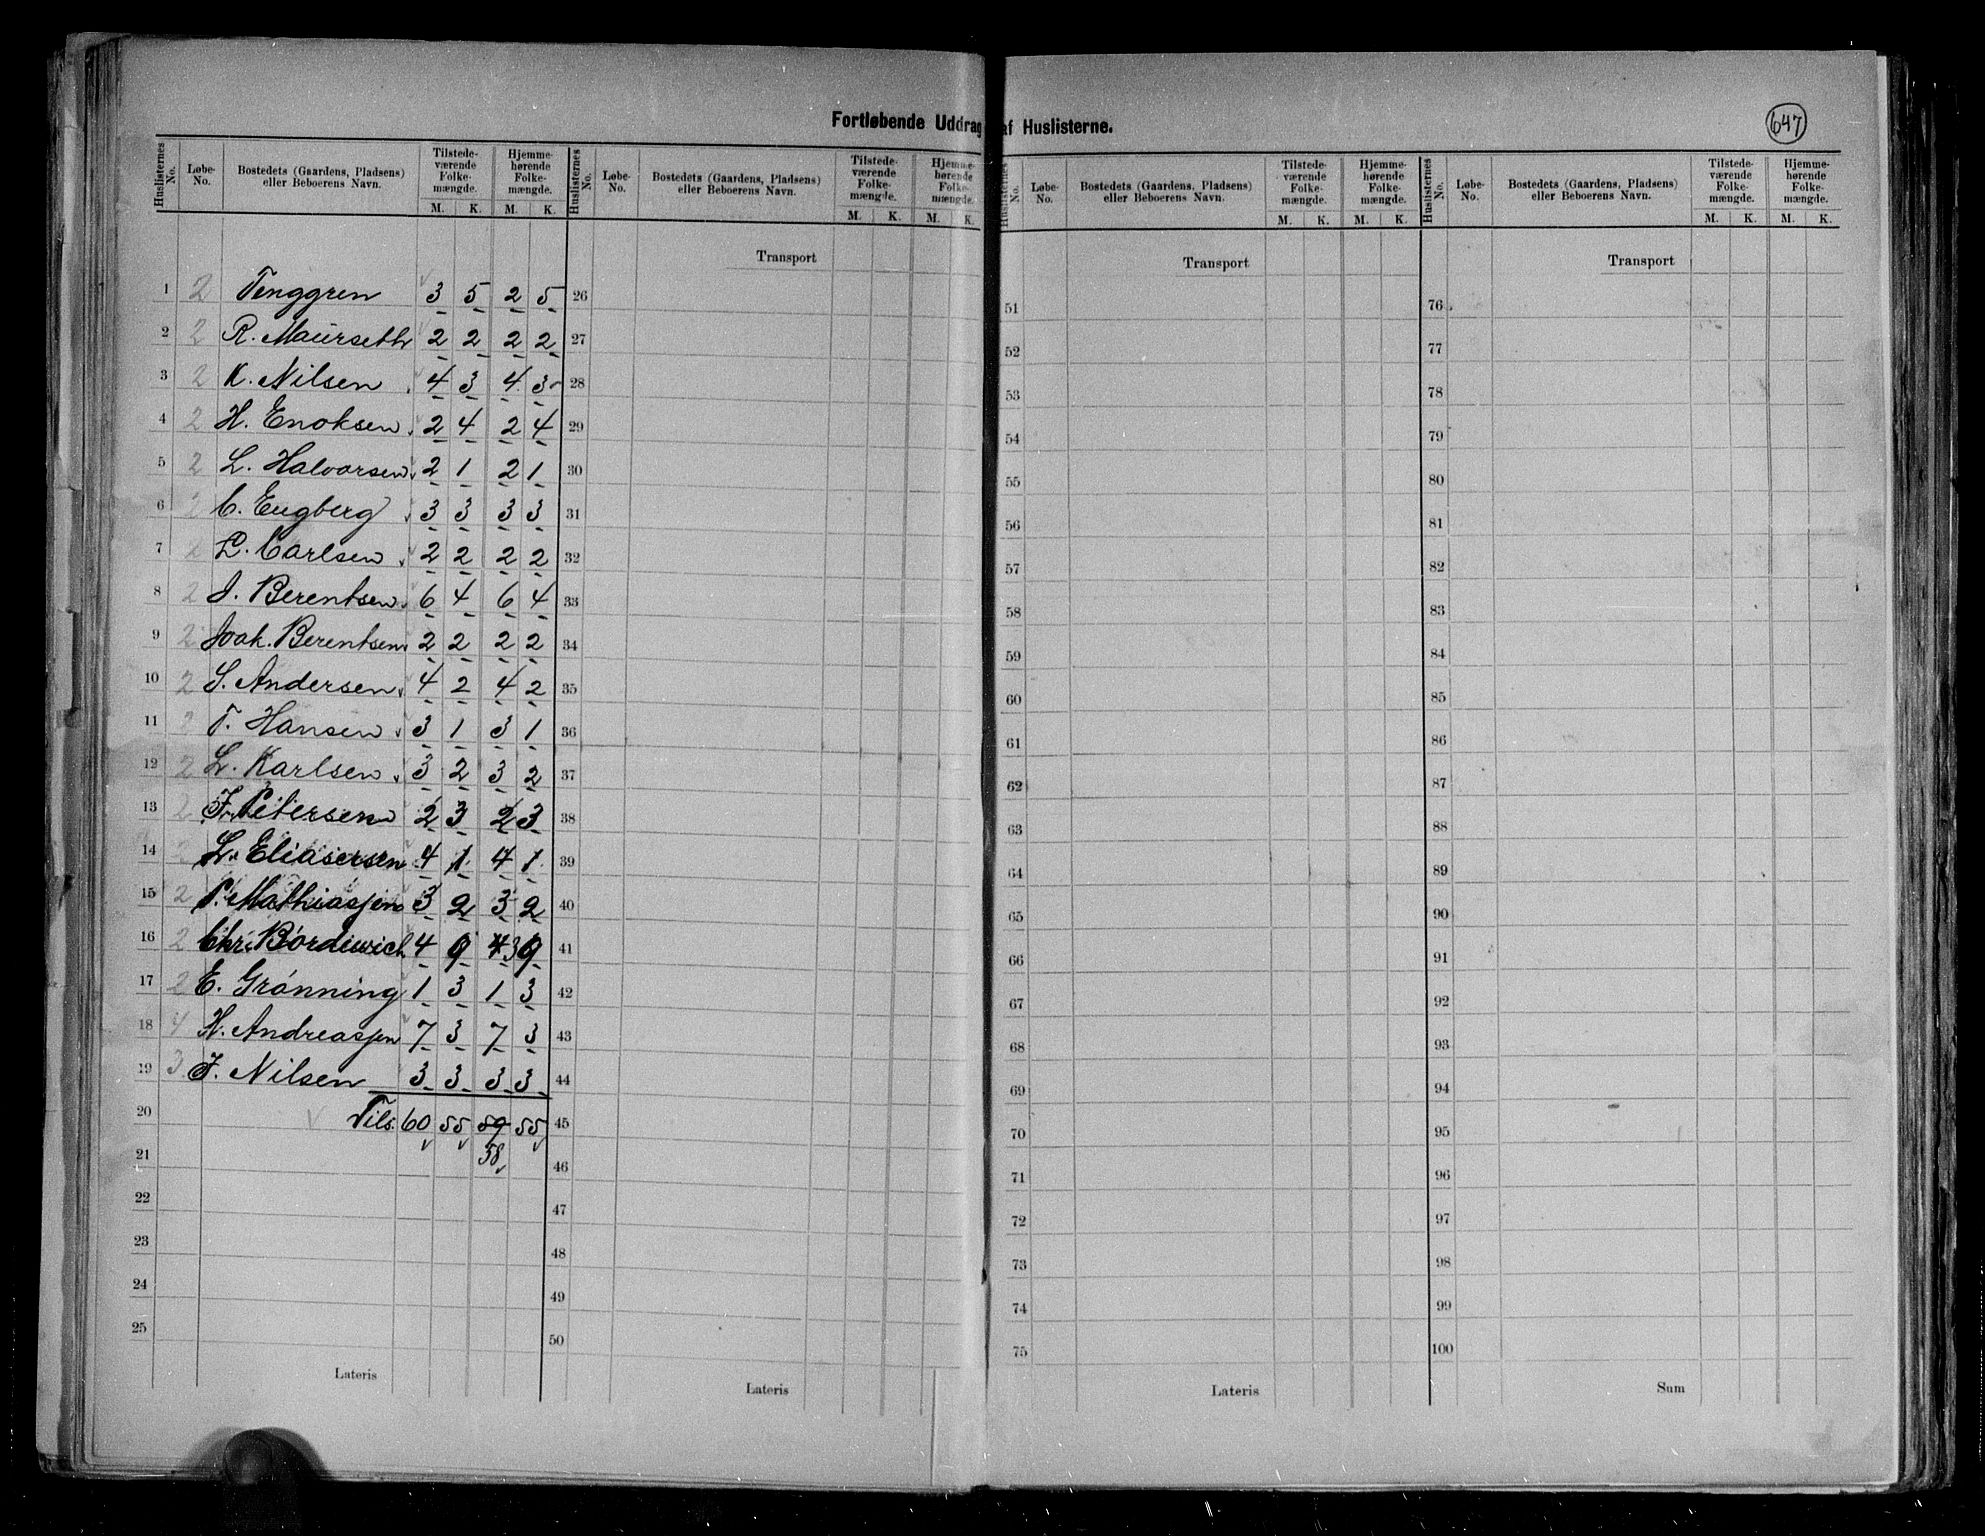 Fortløbende Uddrag af Huslisterne.
647
Huslisternes No. Løbe-No. Bostedets (Gaardens, Pladsens) eller Beboerens Navn. Tilstedeværende Folkemængde. M. K. Hjemmehørende Folkemængde. M. K.
Huslisternes No. Løbe-No. Bostedets (Gaardens, Pladsens) eller Beboerens Navn. Tilstedeværende Folkemængde. M. K. Hjemmehørende Folkemængde. M. K.
Huslisternes No. Løbe-No. Bostedets (Gaardens, Pladsens) eller Beboerens Navn. Tilstedeværende Folkemængde. M. K. Hjemmehørende Folkemængde. M. K.
Huslisternes No. Løbe-No. Bostedets (Gaardens, Pladsens) eller Beboerens Navn. Tilstedeværende Folkemængde. M. K. Hjemmehørende Folkemængde. M. K.
1 2 Tenggren 3 5 2 5
2 2 R. Maurseth 2 2 2 2
3 2 K. Nilsen 4 3 4 3
4 2 H. Enoksen 2 4 2 4
5 2 L. Halvorsen 2 1 2 1
6 2 C. Engberg 3 3 3 3
7 2 L. Carlsen 2 2 2 2
8 2 J. Berentsen 6 4 6 4
9 2 Joak. Berentsen 2 2 2 2
10 2 S. Andersen 4 2 4 2
11 2 T. Hansen 3 1 3 1
12 2 L. Karlsen 3 2 3 2
13 2 Fr. Petersen 2 3 2 3
14 2 L. Eliasersen 4 1 4 1
15 2 P. Mathiassen 3 2 3 2
16 2 Chr. Bordewich 4 9 4 3 9
17 2 E. Grönning 1 3 1 3
18 4 H. Andreassen 7 3 7 3
19 3 J. Nilsen 3 3 3 3
20 Tils. 60 55 59 55
21 58
22
23
24
25
Lateris
Transport
26
27
28
29
30
31
32
33
34
35
36
37
38
39
40
41
42
43
44
45
46
47
48
49
50
Lateris
Transport
51
52
53
54
55
56
57
58
59
60
61
62
63
64
65
66
67
68
69
70
71
72
73
74
75
Lateris
Transport
76
77
78
79
80
81
82
83
84
85
86
87
88
89
90
91
92
93
94
95
96
97
98
99
100
Sum